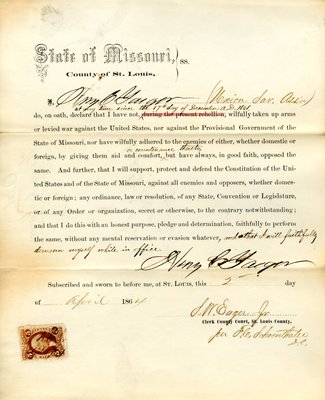 State of Missouri, } ss.
County of St. Louis,
I, Henry C. Yaeger (Union Sav. Assn.)
at any time since the 17th day of December A.D. 1861
do, on oath, declare that I have not, during the present rebellion, wilfully taken up arms
or levied war against the United States, nor against the Provisional Government of the
State of Missouri, nor have wilfully adhered to the enemies of either, whether domestic
or countenance thereby
or foreign, by giving them aid and comfort, but have always, in good faith, opposed the
same. And further, that I will support, protect and defend the Constitution of the Uni-
ted States and of the State of Missouri, against all enemies and opposers, whether domes-
tic or foreign; any ordinance, law or resolution, of any State, Convention or Legislature,
or of any Order or organization, secret or otherwise, to the contrary notwithstanding;
and that I do this with an honest purpose, pledge and determination, faithfully to perform
the same, without any mental reservation or evasion whatever, and that I will faithfully
demean myself while in office.
Henry C. Yaeger
Subscribed and sworn to before me, at St. Louis, this 2 day
of April 1864
S.W. Eager Jr.
Clerk County Court, St. Louis County.
per
D.C.